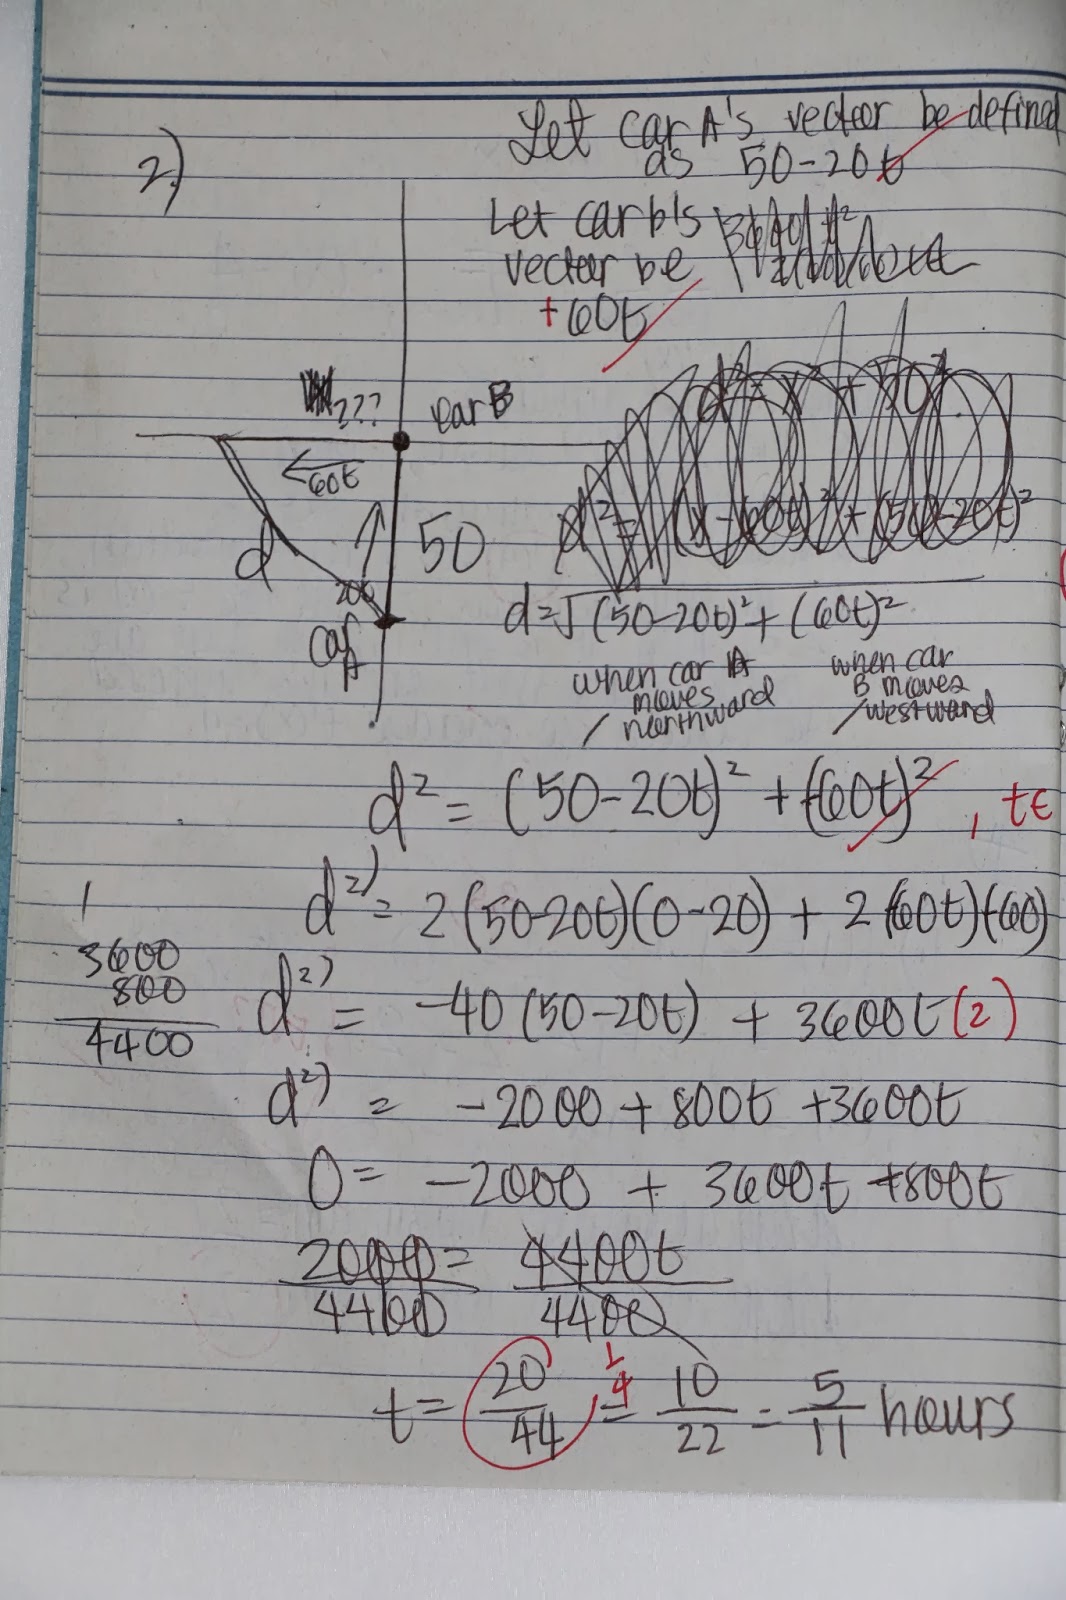 2.)
Let car A's vector be defined
as 50-20t
Let car b's
vector be
+60t
???
car B
←
60t
d
20t
50
Car
A
d=√(50-20t)²+(60t)²
when car A
moves
northward
when car
B moves
westward
d² = (50-20t)² + (-60t)² , t∈
d²' = 2(50-20t)(0-20) + 2(-60t)(-60)
1
3600
800
4400
d²' = -40(50-20t) + 3600t(2)
d²' = -2000 + 800t +3600t
0 = -2000 + 3600t +800t
2000 = 4400t
4400 4400
t = 20/44 = 10/22 = 5/11 hours